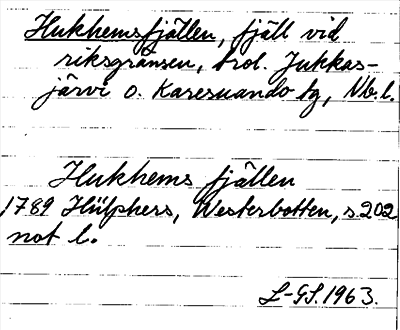 Hukhemsfjällen, fjäll vid
riksgränsen, trol. Jukkas-
järvi o. Karesuando tg, Nb.l.
Hukhems fjällen
1789 Hülphers, Westerbotten, s.202
not l.
L-GS.1963.